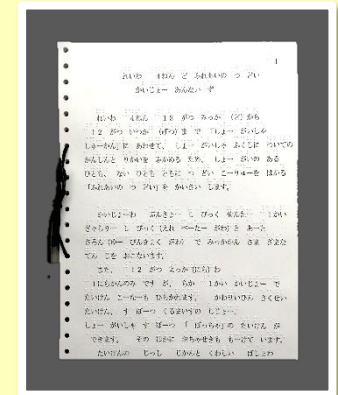 1
れいわ 4ねん ど ふれあいの つ どい
かいじょー あんない ず
れいわ 4ねん 12 がつ みっか (ど) から
12 がつ いつか (げつ) まで 「しょー がいしゃ
しゅーかん」に あわせて、 しょー がいしゃ ふくしに ついての
かんしんと りかいを ふかめる ため、 しょー がいの ある
ひとも、 ない ひとも ともに つ どい こーりゅーを はかる
「ふれあいの つ どい」を かいさい します。
かいじょーわ ぶんきょー し びっく せんたー 1かい
ぎゃらりー し びっく (えれ べーたー がわ) と あーと
さろん で みっかかん さま ざまな
てん じを おこないます。
また、 12 がつ よっか (にち) わ
1にちかんのみ です が、 1かい かいじょーで
たいけん こーなーも ひらかれます。
たいけん、 す ぽーつ くるまいすの しじょー、
しょー がいしゃ す ぽーつ 「 ぼっちゃ」の たいけん が
できます。 その ほかに おちゃせきも もーけて います。
たいけんの じっし じかんと くわしい ばしょわ